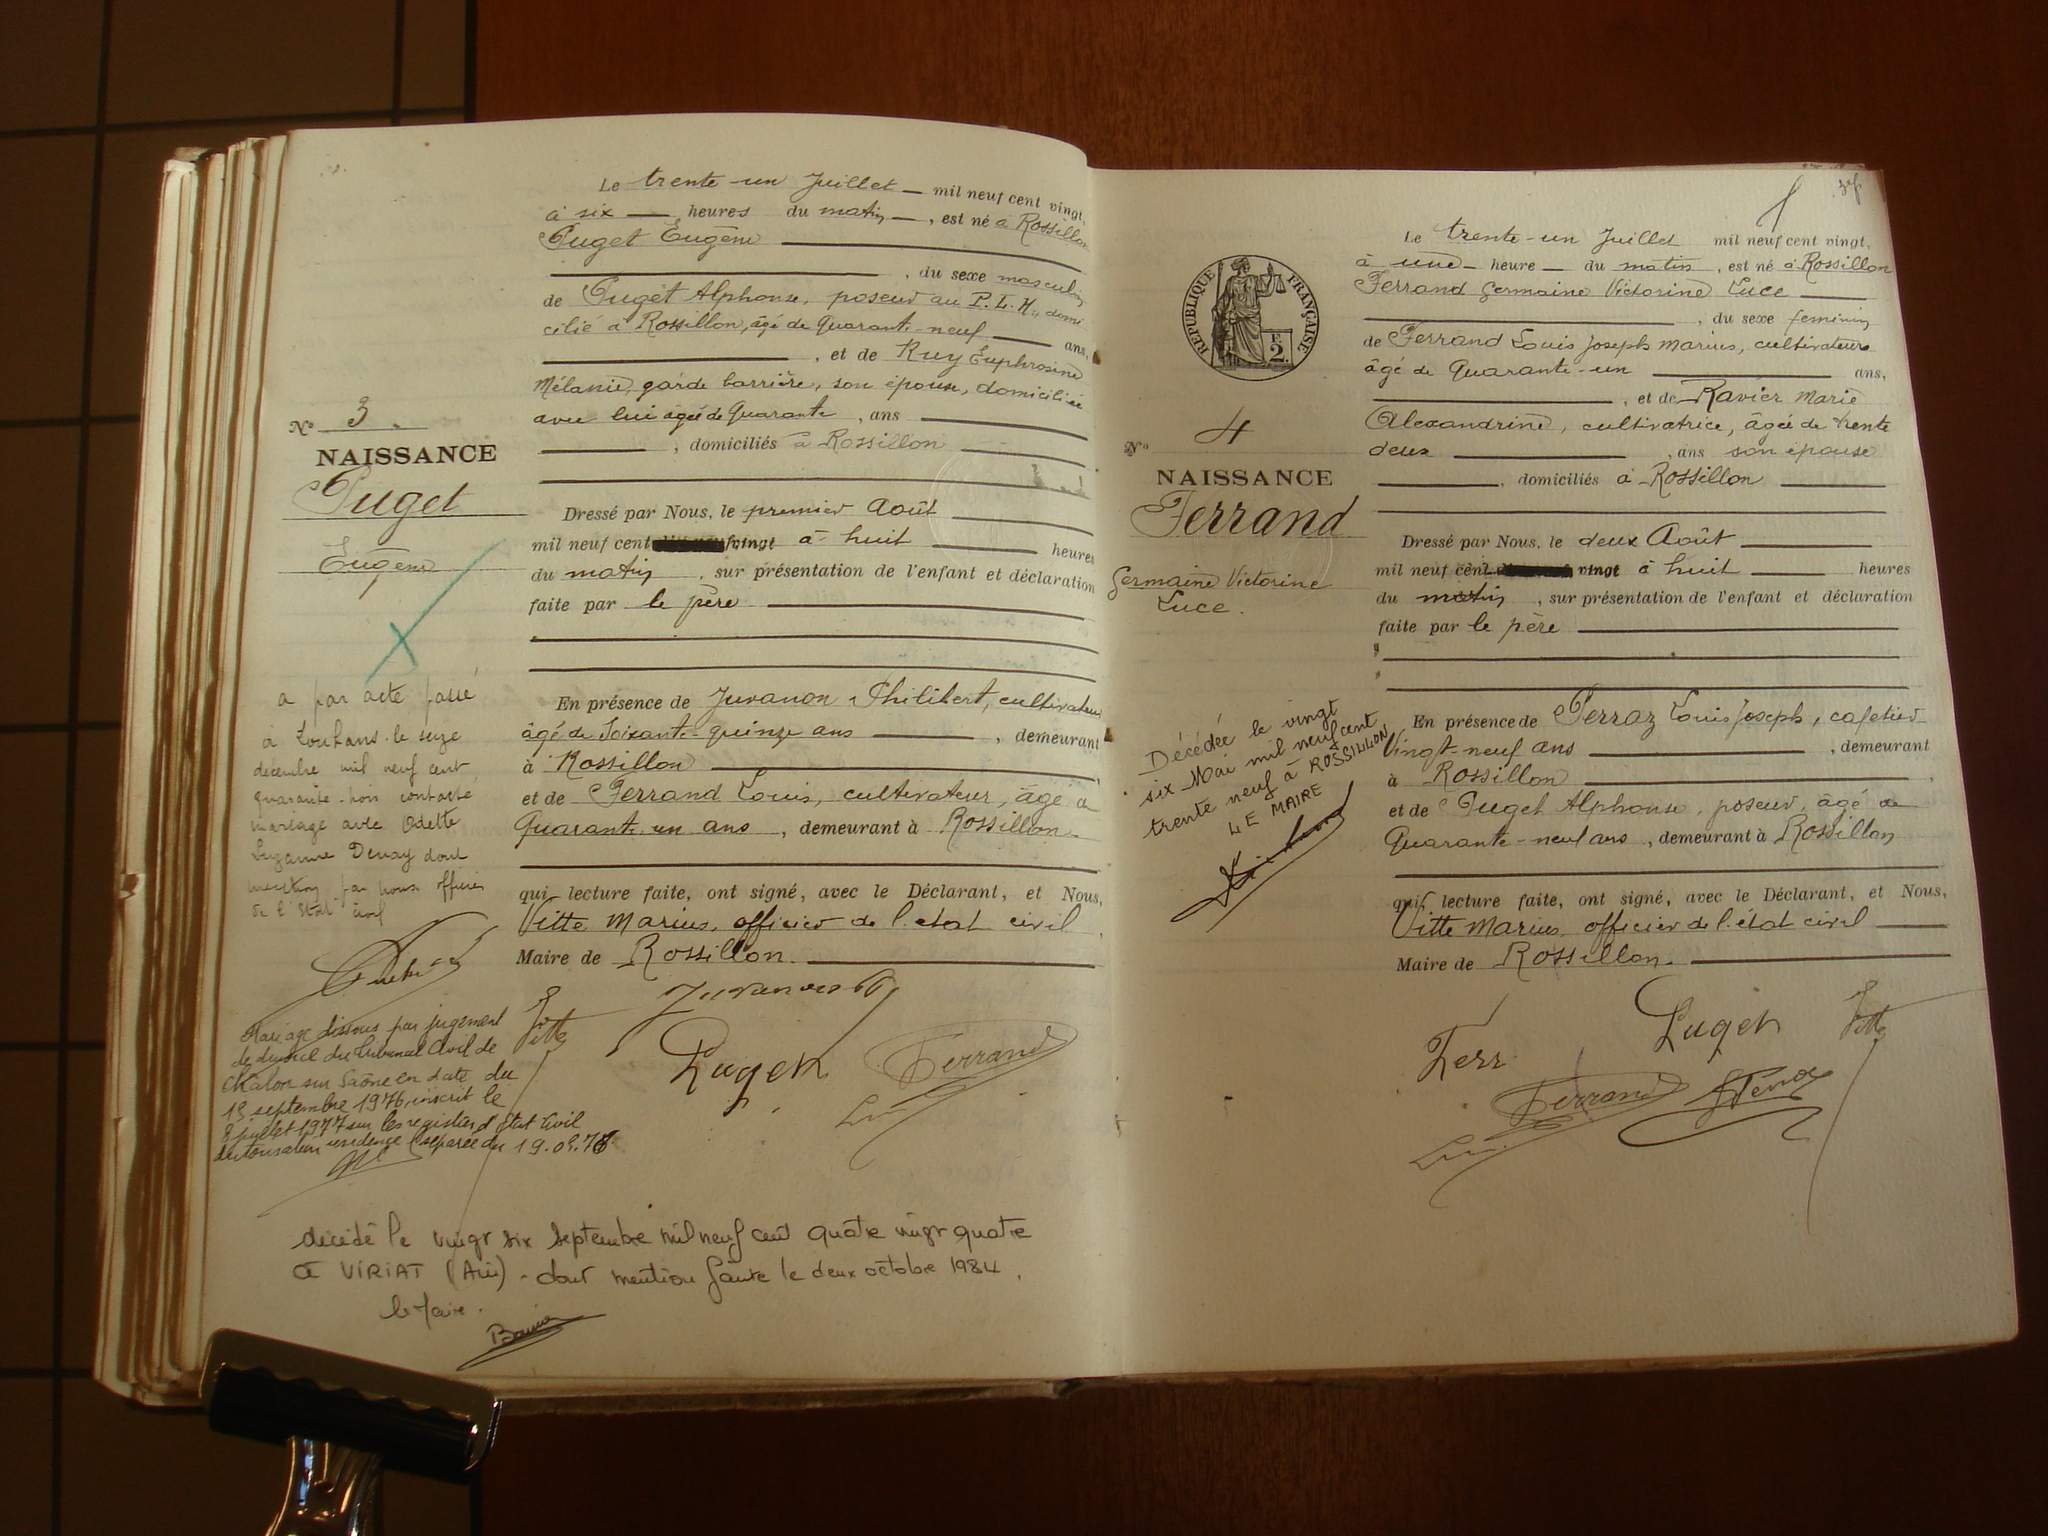 Le trente-un Juillet — mil neuf cent vingt,
à six — heures du matin —, est né à Rossillon
Puget Eugène
, du sexe masculin
de Puget Alphonse, poseur au P.L.M., domi
cilié à Rossillon, âgé de Quarante-neuf ans,
, et de Ruy Euphrosine
Mélanie, garde barrière, son épouse, domiciliée
avec lui âgée de Quarante, ans
, domiciliés à Rossillon
N° 3.
NAISSANCE
Puget
Eugène
Dressé par Nous, le premier Août
mil neuf cent vingt à huit heures
du matin, sur présentation de l'enfant et déclaration
faite par le père
En présence de Juvanon Philibert, cultivateur
âgé de Soixante-quinze ans, demeurant
à Rossillon
et de Ferrand Louis, cultivateur, âgé de
Quarante un ans, demeurant à Rossillon
qui, lecture faite, ont signé, avec le Déclarant, et Nous,
Vitte Marius, officier de l'état civil
Maire de Rossillon.
a par acte passé
à Louhans le seize
décembre mil neuf cent
quarante-trois contracté
mariage avec Odette
Suzanne Denay dont
mention par nous officier
de l'état civil
Mariage dissous par jugement
de divorce du Tribunal Civil de
Chalon sur Saône en date du
13 septembre 1976, inscrit le
8 juillet 1977 sur les registres d'Etat Civil
autorisation résidence séparée du 19.
Vitte
Puget
Ferrand
décédé le vingt six septembre mil neuf cent quatre vingt quatre
à VIRIAT (Ain) - dont mention faite le deux octobre 1984.
le Maire.
Le trente-un Juillet mil neuf cent vingt,
à une heure — du matin, est né à Rossillon
Ferrand Germaine Victorine Luce
, du sexe feminin
de Ferrand Louis Joseph Marius, cultivateur
âgé de Quarante-un ans,
, et de Ravier Marie
Alexandrine, cultivatrice, âgée de trente
deux, ans son épouse
, domiciliés à Rossillon
REPUBLIQUE FRANÇAISE
F.
2.
N° 4
NAISSANCE
Ferrand
Germaine Victorine
Luce.
Dressé par Nous, le deux Août
mil neuf cent vingt à huit heures
du matin, sur présentation de l'enfant et déclaration
faite par le père
En présence de Perraz Louis Joseph, cafetier
Vingt-neuf ans, demeurant
à Rossillon
et de Puget Alphonse, poseur, âgé de
Quarante-neuf ans, demeurant à Rossillon
qui, lecture faite, ont signé, avec le Déclarant, et Nous,
Vitte Marius officier de l'état civil
Maire de Rossillon.
Décédée le vingt
six Mai mil neuf cent
trente neuf à ROSSILLON
LE MAIRE
Ferr
Puget
Vitte
Ferrand